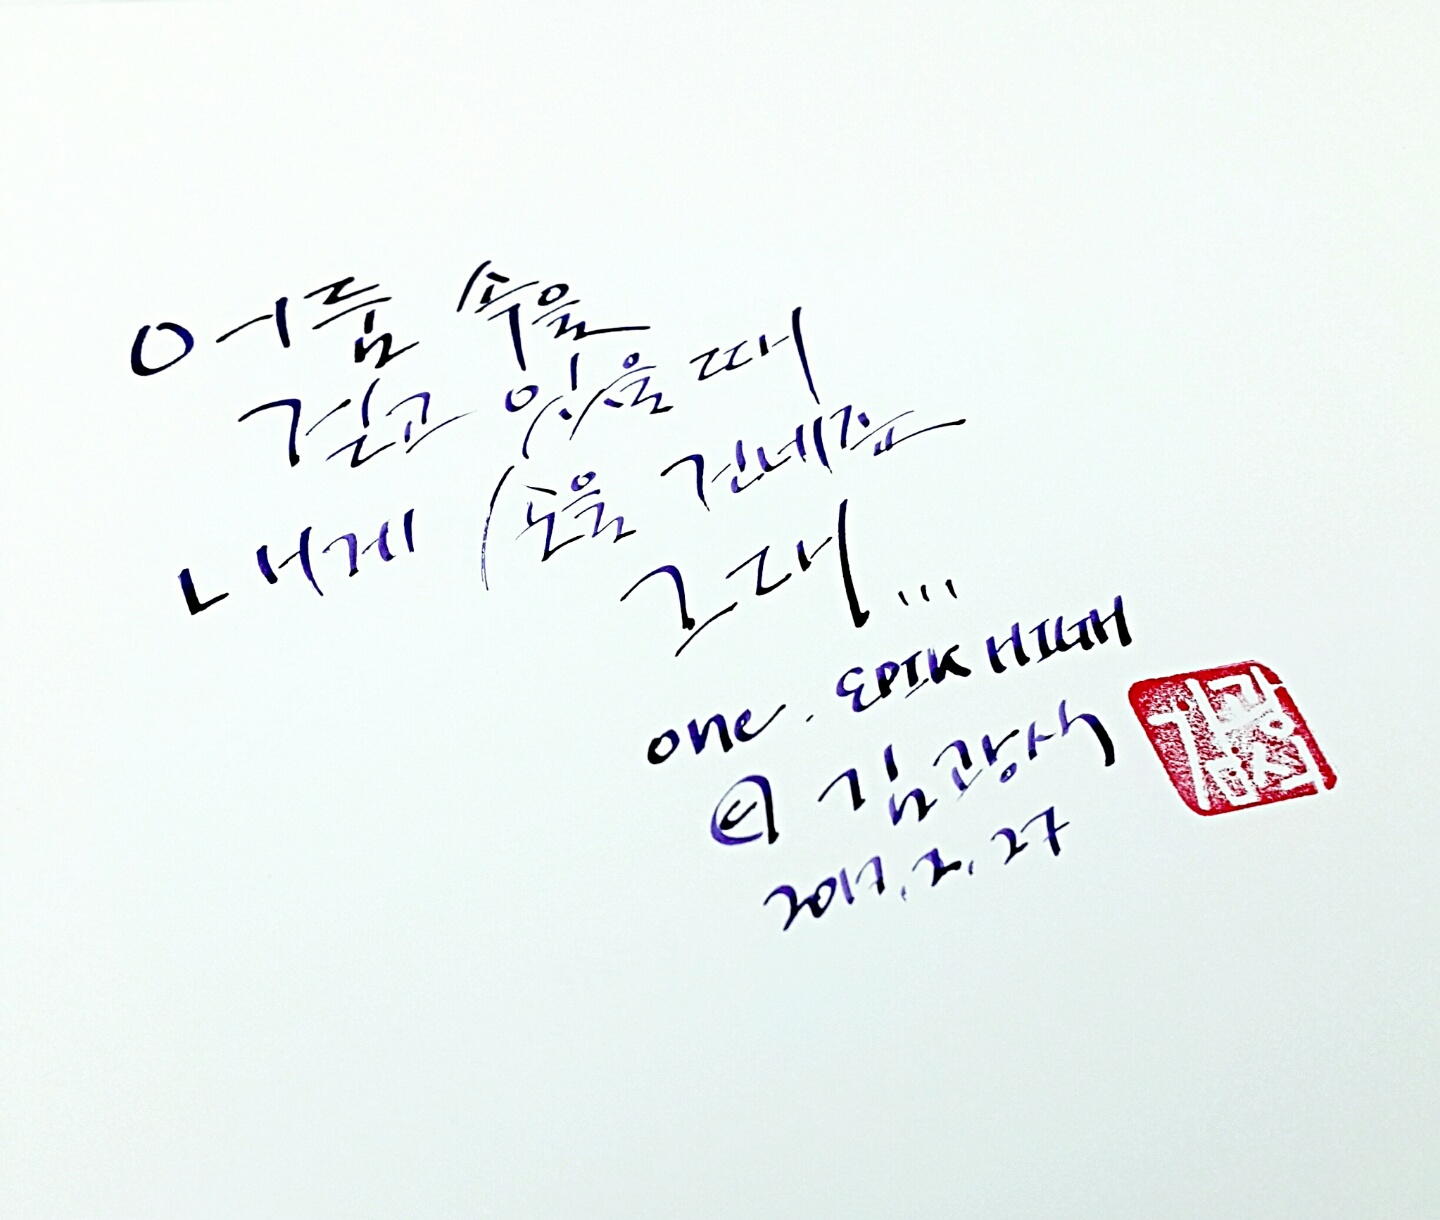 어둠 속을
걷고 있을 때
내게 손을 건네준
그대...
one. EPIK HIGH
김광석
2017. 2. 27